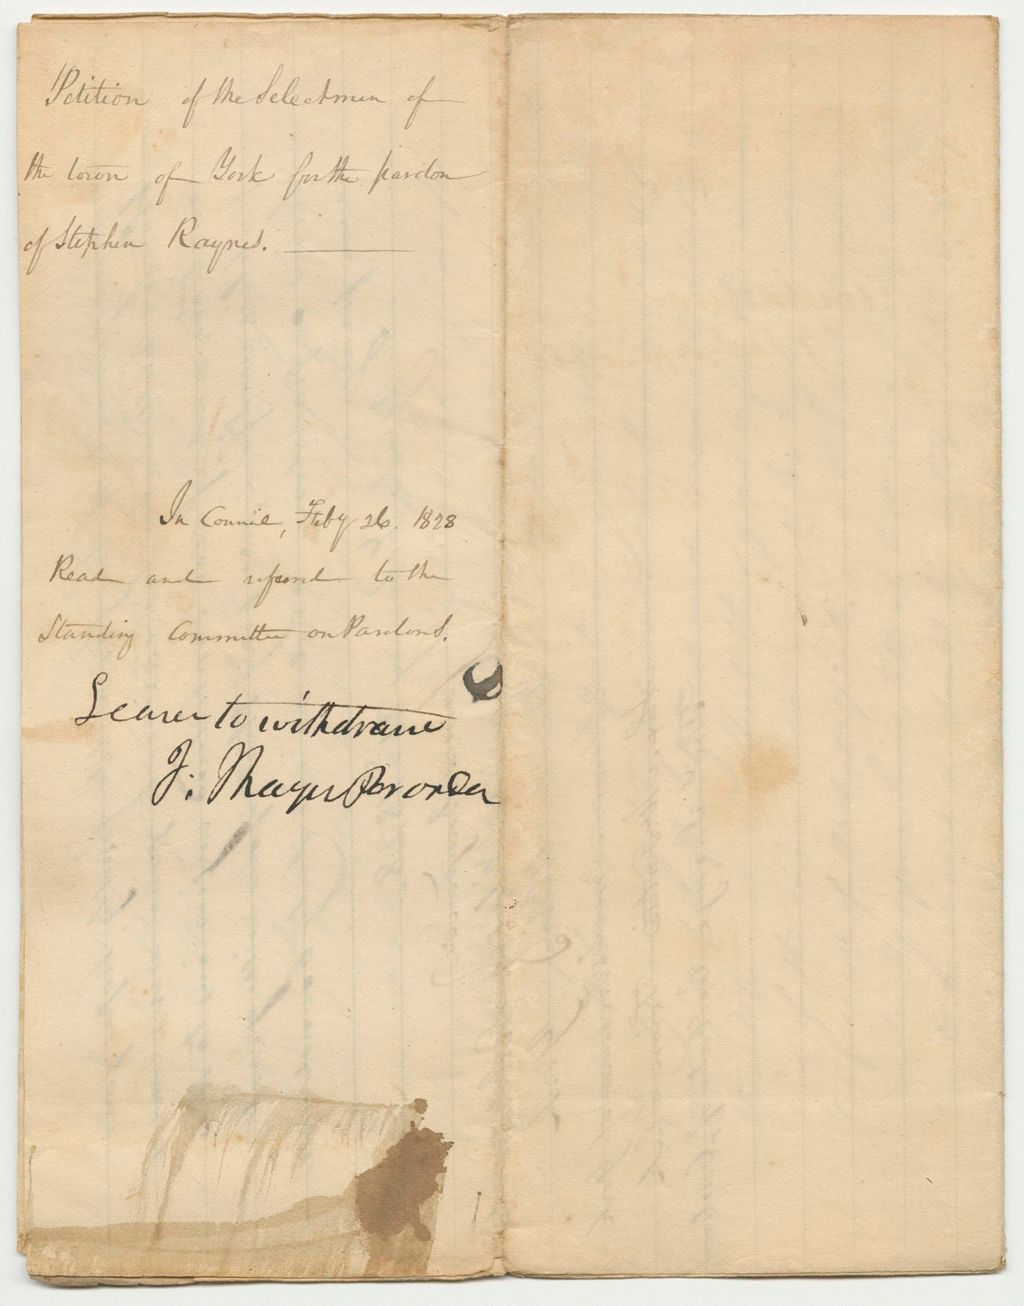 Petition of the Selectmen of
the town of York for the pardon
of Stephen Raynes.
In Council, Feby 26. 1828
Read and referred to the
Standing Committee on Pardons.
Leave to withdraw
J: Thayer